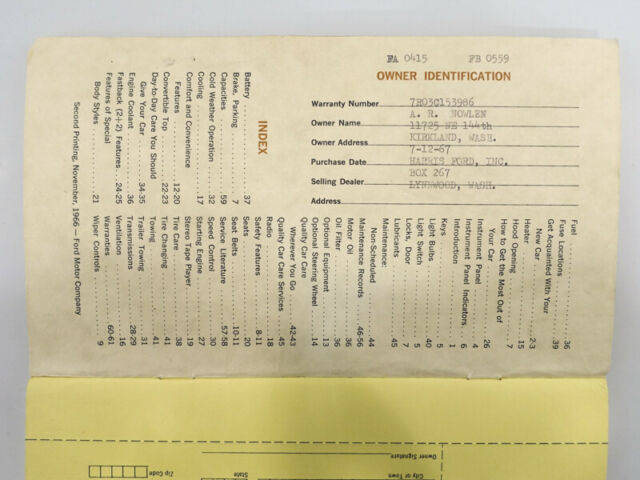 FA 0415 FB 0559
OWNER IDENTIFICATION
Warranty Number 7R03C153986
Owner Name A. R. NOWLEN
11725 NE 144th
Owner Address KIRKLAND, WASH.
Purchase Date 7-12-67
Selling Dealer HARRIS FORD, INC.
BOX 267
Address LYNNWOOD, WASH.
INDEX
Battery 37
Brake, Parking 7
Capacities 59
Cold Weather Operation 32
Cooling 17
Comfort and Convenience
Features 12-20
Convertible Top 22-23
Day-to-Day Care You Should
Give Your Car 34-35
Engine Coolant 36
Fastback (2+2) Features 24-25
Features of Special
Body Styles 21
Fuel 36
Fuse Locations 39
Get Acquainted With Your
New Car 2-3
Heater 15
Hood Opening 7
How to Get the Most Out of
Your Car 26
Instrument Panel 4
Instrument Panel Indicators 6
Introduction 1
Keys 5
Light Bulbs 40
Light Switch 5
Locks, Door 7
Lubricants 45
Maintenance:
Non-Scheduled 44
Maintenance Records 46-56
Motor Oil 36
Oil Filter 36
Optional Equipment 13
Optional Steering Wheel 14
Quality Car Care
Wherever You Go 42-43
Quality Car Care Services 45
Radio 18
Safety Features 8-11
Seats 20
Seat Belts 10-11
Service Literature 57-58
Speed Control 30
Starting Engine 27
Stereo Tape Player 19
Tire Care 38
Tire Changing 41
Towing 41
Trailer Towing 31
Transmissions 28-29
Ventilation 16
Warranties 60-61
Wiper Controls 9
Second Printing, November, 1966 — Ford Motor Company
Owner Signature
City or Town
State
Zip Code